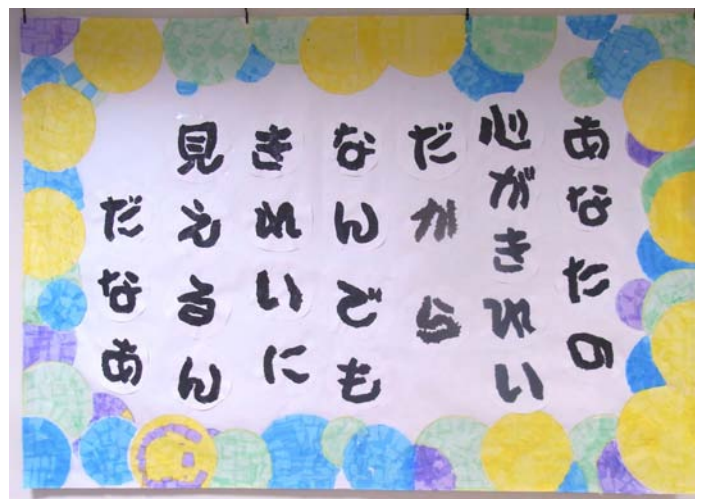 あなたの
心がきれい
だから
なんでも
きれいに
見えるん
だなあ